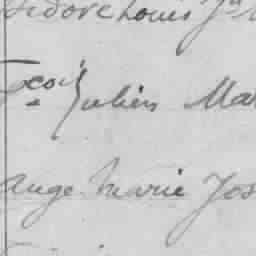 Isidore Louis Jn
Fcois Julien Mar
ange Marie Jos